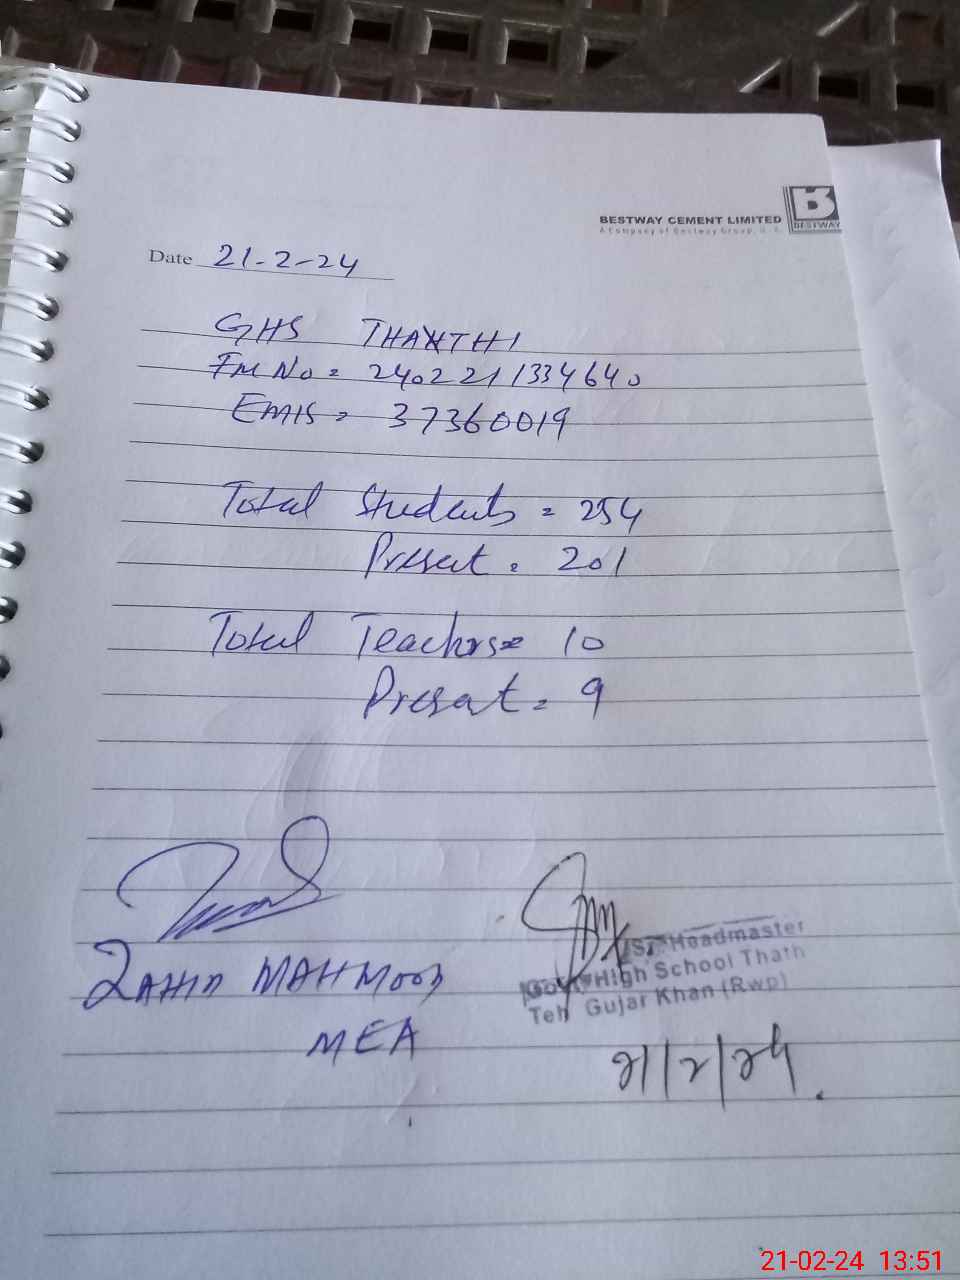 BESTWAY CEMENT LIMITED
A Company of Bestway Group, U.K.
BESTWAY
Date 21-2-24
GHS THATHI
Fm No = 2402211334640
EMIS = 37360019
Total Students = 254
Present = 201
Total Teachers = 10
Present = 9
ZAHID MAHMOOD
MEA
Sr. Headmaster
Govt. High School Thath
Teh Gujar Khan (Rwp)
21/2/24.
21-02-24 13:51